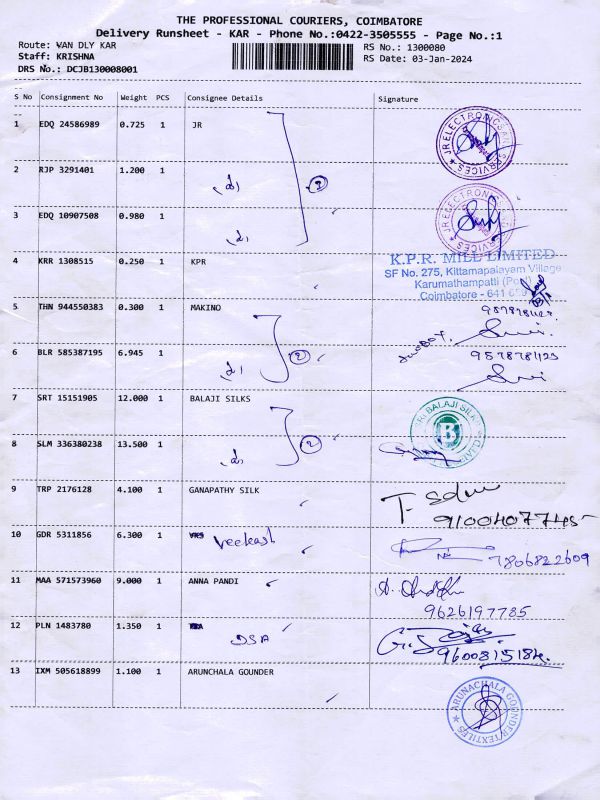 THE PROFESSIONAL COURIERS, COIMBATORE
Delivery Runsheet - KAR - Phone No.:0422-3505555 - Page No.:1
Route: VAN DLY KAR
RS No.: 1300080
Staff: KRISHNA
RS Date: 03-Jan-2024
DRS No.: DCJB130008001
S No Consignment No Weight PCS Consignee Details Signature
1 EDQ 24586989 0.725 1 JR
JR ELECTRONICS AND SERVICES
2 RJP 3291401 1.200 1
2
3 EDQ 10907508 0.980 1
JR ELECTRONICS AND SERVICES
4 KRR 1308515 0.250 1 KPR
K.P.R. MILL LIMITED
SF No. 275, Kittampalayam Village
Karumathampatti (Post)
Coimbatore - 641 659
5 THN 944550383 0.300 1 MAKINO
6 BLR 585387195 6.945 1
2
9578781123
7 SRT 15151905 12.000 1 BALAJI SILKS
SRI BALAJI SILK
B
8 SLM 336380238 13.500 1
2
9 TRP 2176128 4.100 1 GANAPATHY SILK
9100407745
10 GDR 5311856 6.300 1 Veekast
7806822609
11 MAA 571573960 9.000 1 ANNA PANDI
9626197785
12 PLN 1483780 1.350 1 DSA
13 IXM 505618899 1.100 1 ARUNCHALA GOUNDER
ARUNACHALA GOUNDER TEXTILES